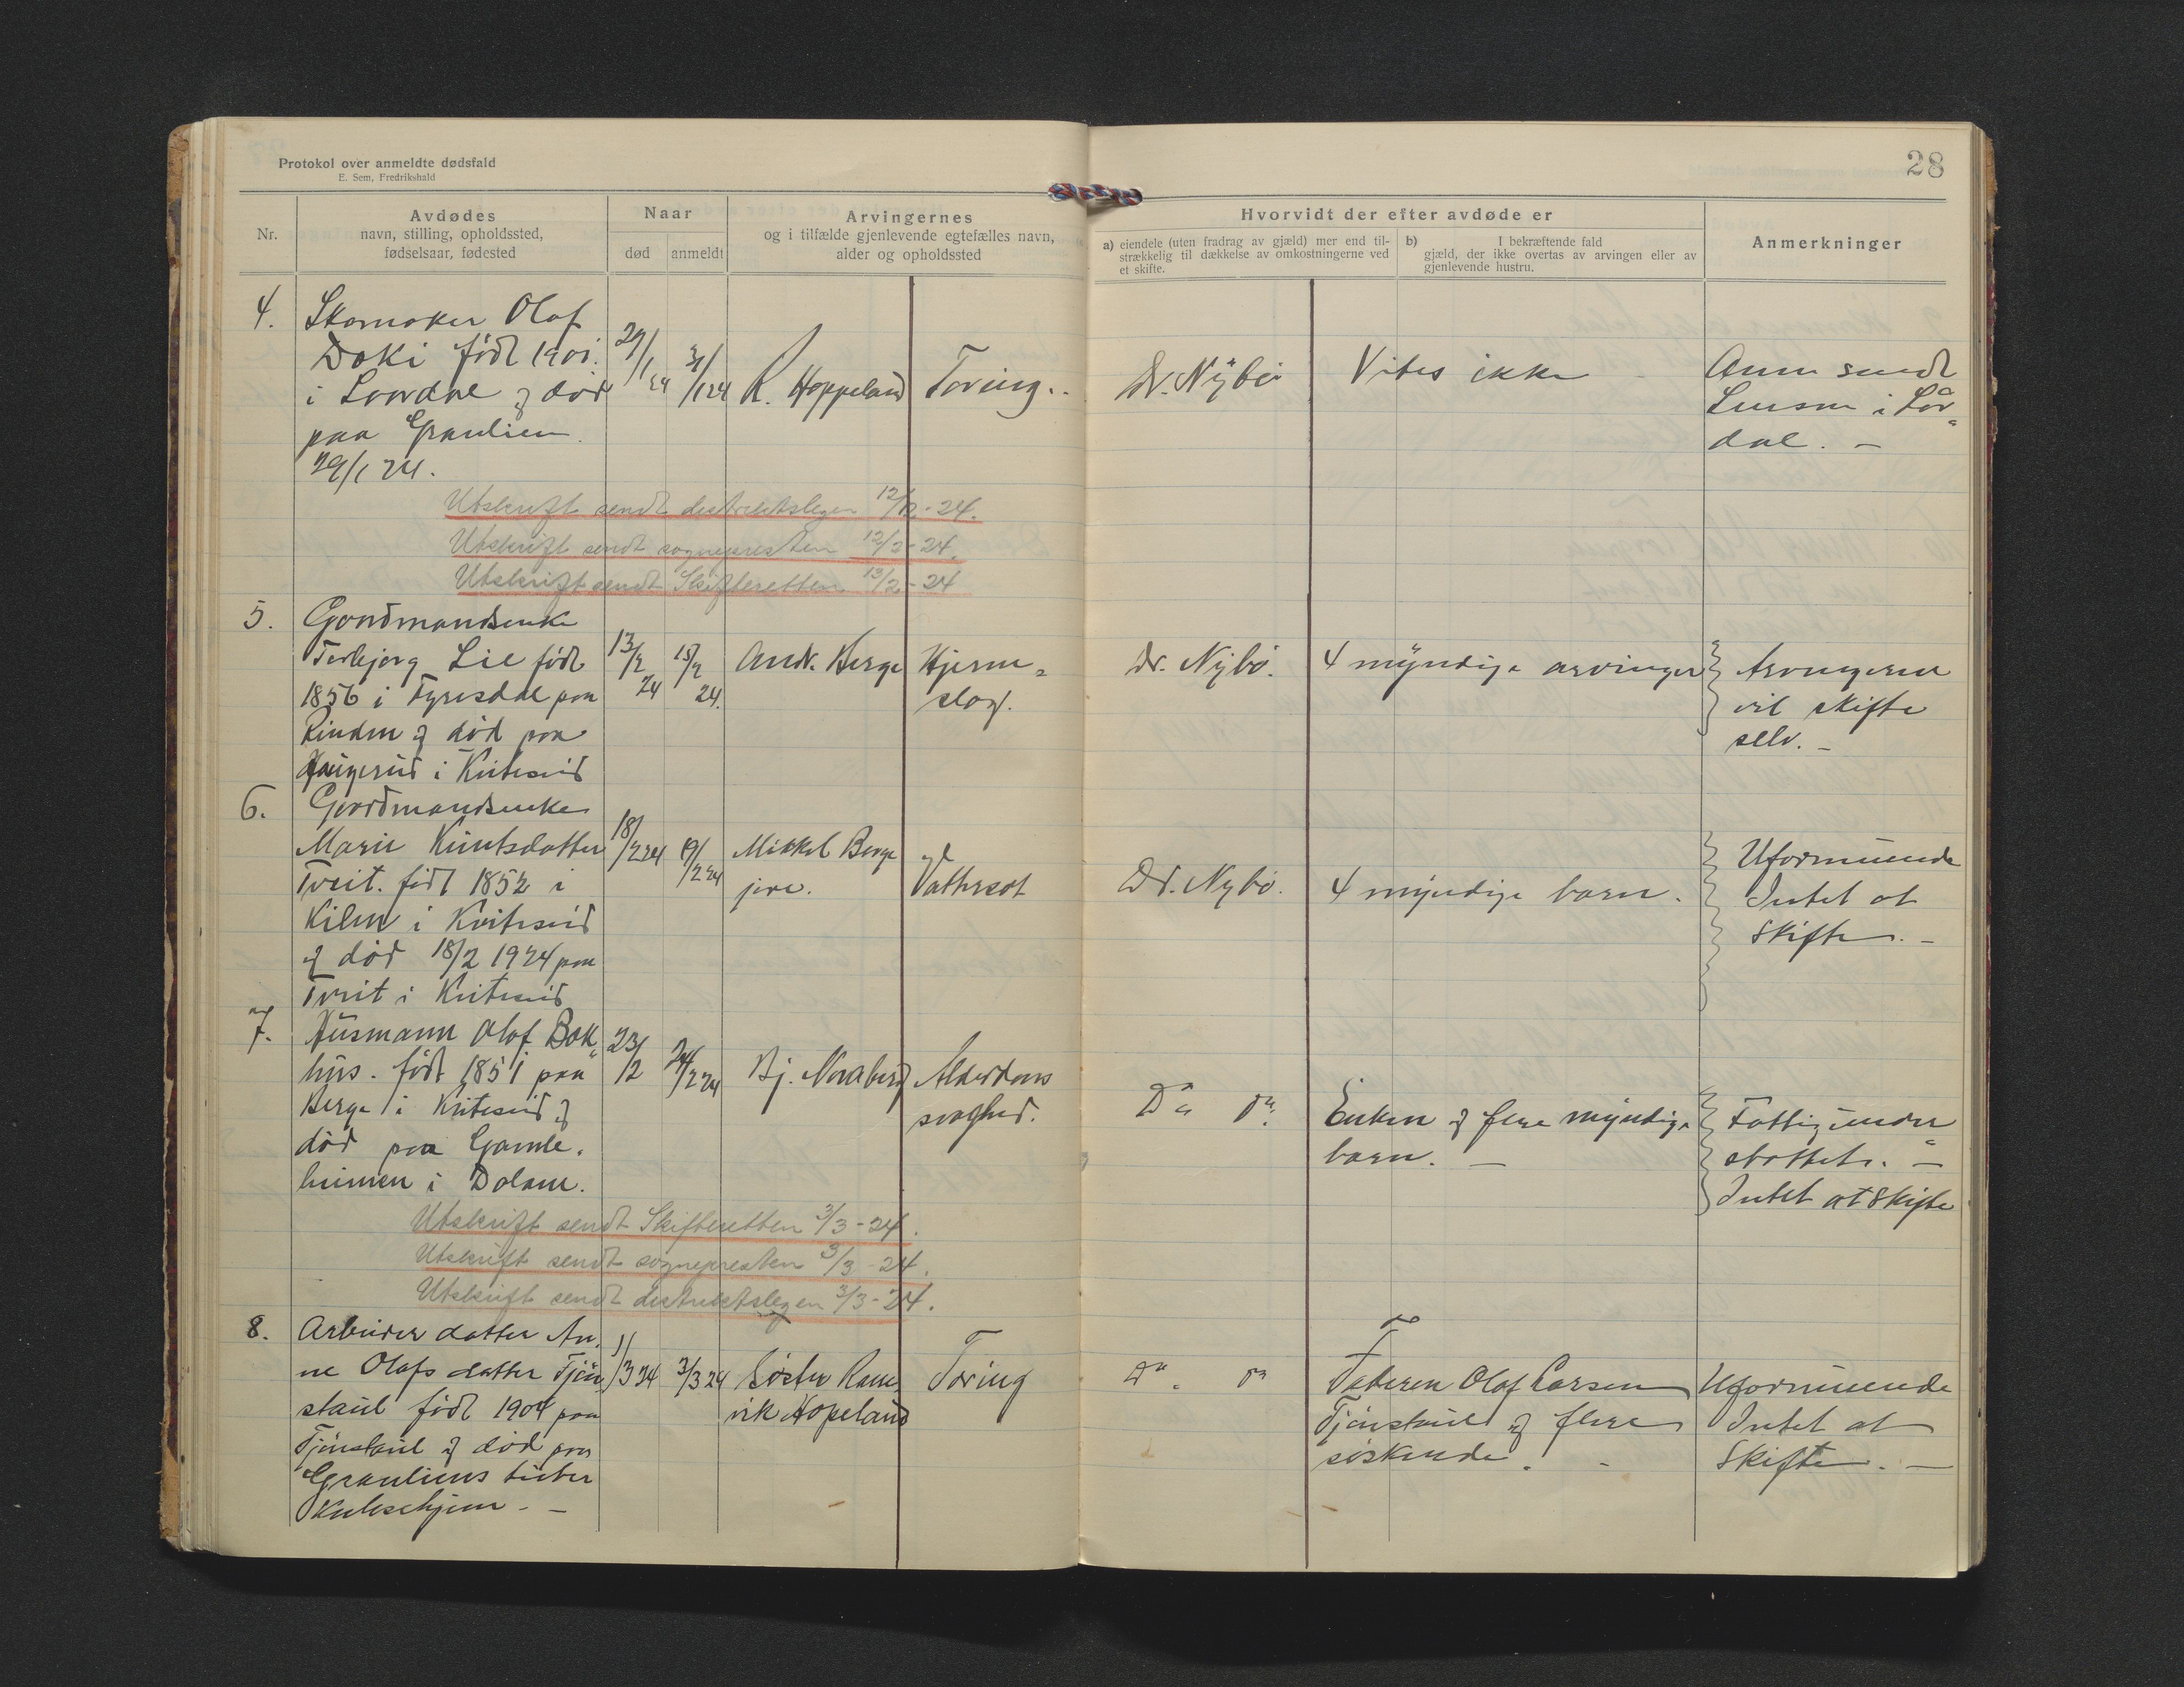 Protokol over anmeldte dødsfald
E. Sem, Fredrikshald
28
Nr.
Avdødes
navn, stilling, opholdssted,
fødselsaar, fødested
Naar
død
anmeldt
Arvingernes
og i tilfælde gjenlevende egtefælles navn,
alder og opholdssted
Hvorvidt der efter avdøde er
a) eiendele (uten fradrag av gjæld) mer end til-
strækkelig til dækkelse av omkostningerne ved
et skifte.
b) I bekræftende fald
gjæld, der ikke overtas av arvingen eller av
gjenlevende hustru.
Anmerkninger
4.
Skomaker Olaf
Doki født 1901.
i Laardal og død
paa Graulien.
29/1 24.
29/1 24
31/1 24
R. Hoppeland
Tæring..
Dr. Nybø
Vites ikke
Anm sendt
Lensm i Lår-
dal. -
Utskrift sendt distriktslegen 12/2-24.
Utskrift sendt sognepresten 12/2-24.
Utskrift sendt Skifteretten 13/2-24
5.
Gaardmandsenke
Torbjørg Lie født
1856 i Fyresdal paa
Rinden og død paa
Haugerud i Kviteseid
13/2 24
15/2 24.
Andr. Berge
Hjerne-
slag.
Dr. Nybø.
4 myndige arvinger
Arvingerne
vil skifte
selv. -
6.
Gaardmandsenke
Marie Knutsdatter
Tveit. født 1852 i
Kilen i Kviteseid
og død 18/2 1924 paa
Tveit i Kviteseid
18/2 24
19/2 24
Mikkel Berge
jore.
Vattersot
Dr. Nybø.
4 myndige barn.
Uformuende
Intet at
Skifte. -
7.
Husmann Olaf Bak-
hus. født 1851 paa
Berge i Kviteseid og
død paa Gamle-
heimen i Dalane.
23/2
24/2 24
Bj. Noraberg
Alderdoms
svaghed.
Do do.
Enken og flere myndige
barn. -
Fattigunder-
støttet. -
Intet at Skifte
Utskrift sendt Skifteretten 3/3-24.
Utskrift sendt sognepresten 3/3-24.
Utskrift sendt distriktslegen 3/3-24.
8.
Arbeider datter An-
ne Olafs datter Tjøn
staul født 1904 paa
Tjønstaul og død paa
Grauliens tuber
kulosehjem. -
1/3 24
3/3 24
Søster Ram
vik Hopeland
Tæring
Do. do
Faderen Olaf Larsen
Tjønstaul og flere
søskende. -
Uformuende
Intet at
Skifte. -